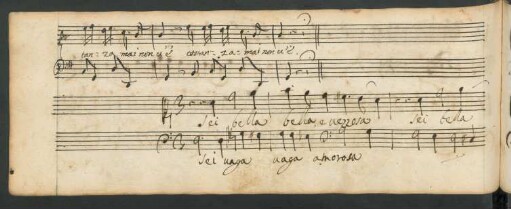 tan- za mai non v'è costan- za mai non v'è.
Sei bella bella, e vezzosa Sei bella
Sei vaga vaga amorosa